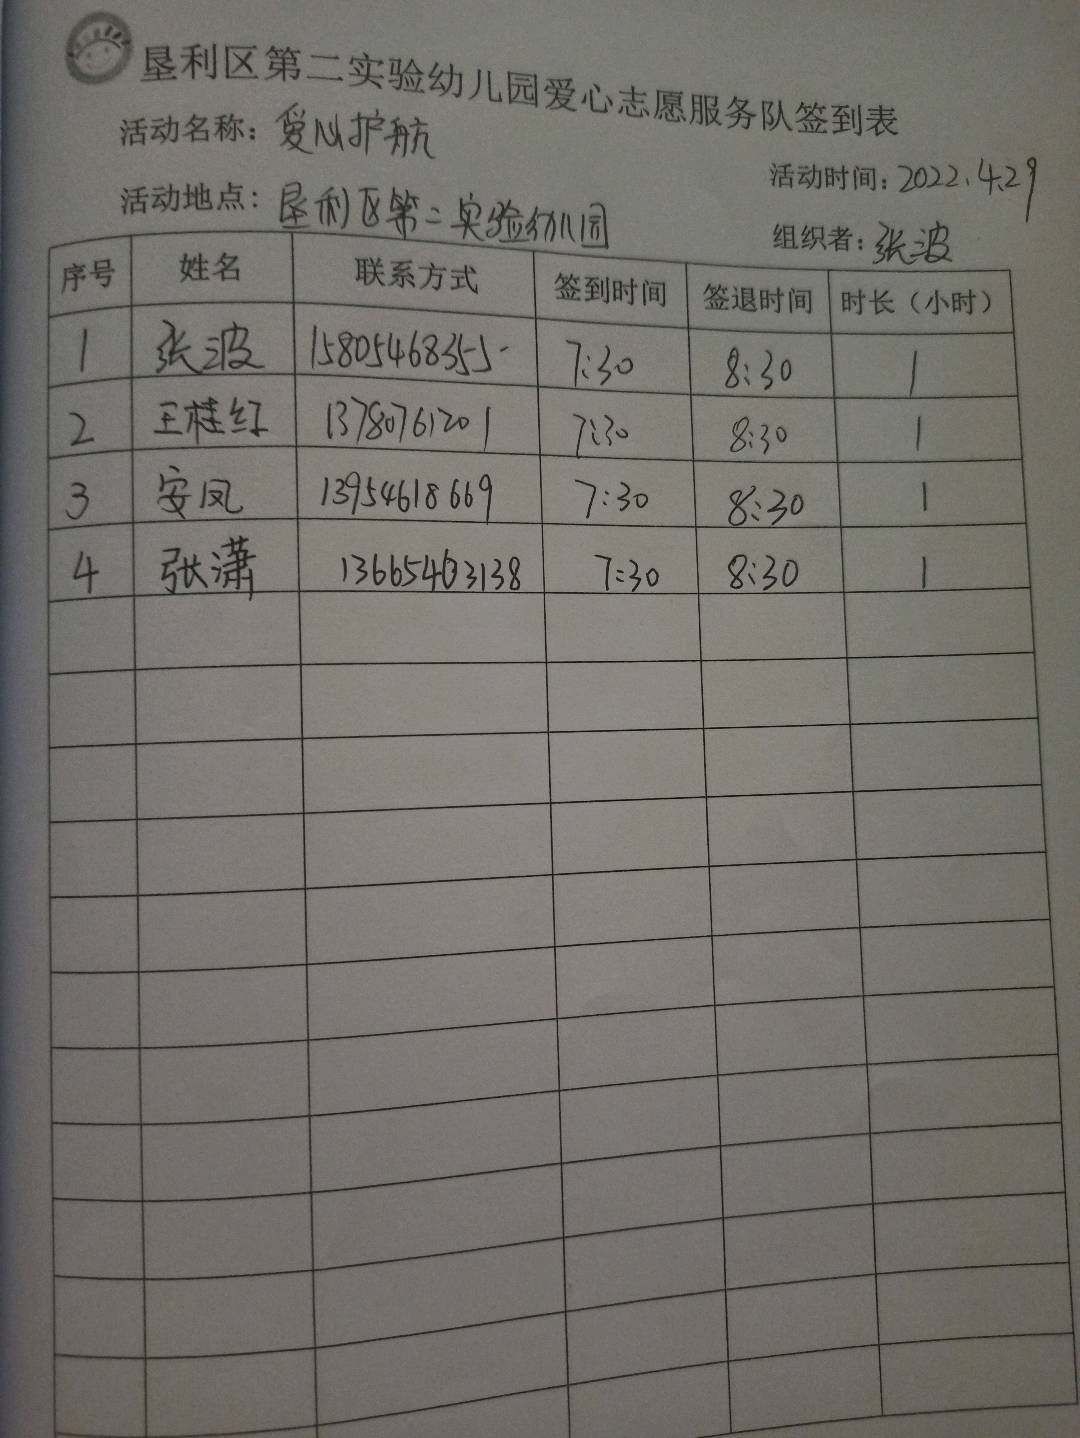 垦利区第二实验幼儿园爱心志愿服务队签到表
活动名称：爱心护航
活动时间：2022.4.29
活动地点：垦利区第二实验幼儿园
组织者：张波
序号 姓名 联系方式 签到时间 签退时间 时长（小时）
1 张波 15805468355 7:30 8:30 1
2 王桂红 13780761201 7:30 8:30 1
3 安凤 13954618669 7:30 8:30 1
4 张潇 13665463138 7:30 8:30 1